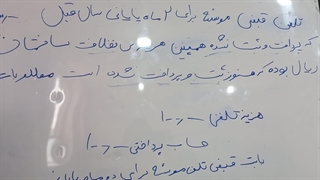 تلفن قبض موسسه برای ۲ ماه پایانی سال قبل
که پرداخت و ثبت نشده همچنین هزینه نظافت ساختمان
ریال بوده که هنوز ثبت و پرداخت نشده است مطلوبات
هزینه تلفن
حساب پرداختنی
بابت قبض تلفن موسسه برای دو ماه پایان